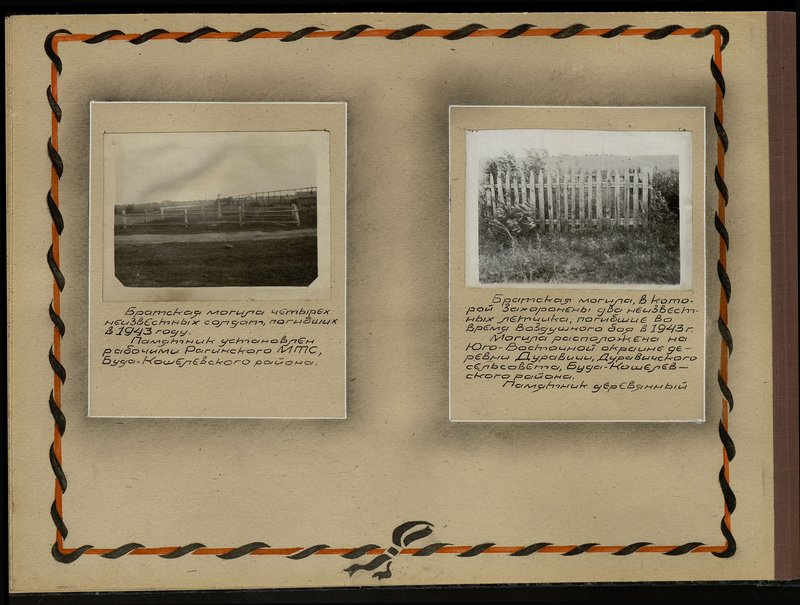 Братская могила четырех
неизвестных солдат, погибших
в 1943 году.
Памятник установлен
рабочими Рагинского МТС,
Буда-Кошелевского района.
Братская могила, в кото-
рой захоронены два неизвест-
ных летчика, погибшие во
время воздушного боя в 1943 г.
Могила расположена на
Юго-Восточной окраине де-
ревни Дуравичи, Дуравичского
сельсовета, Буда-Кошелев-
ского района.
Памятник деревянный